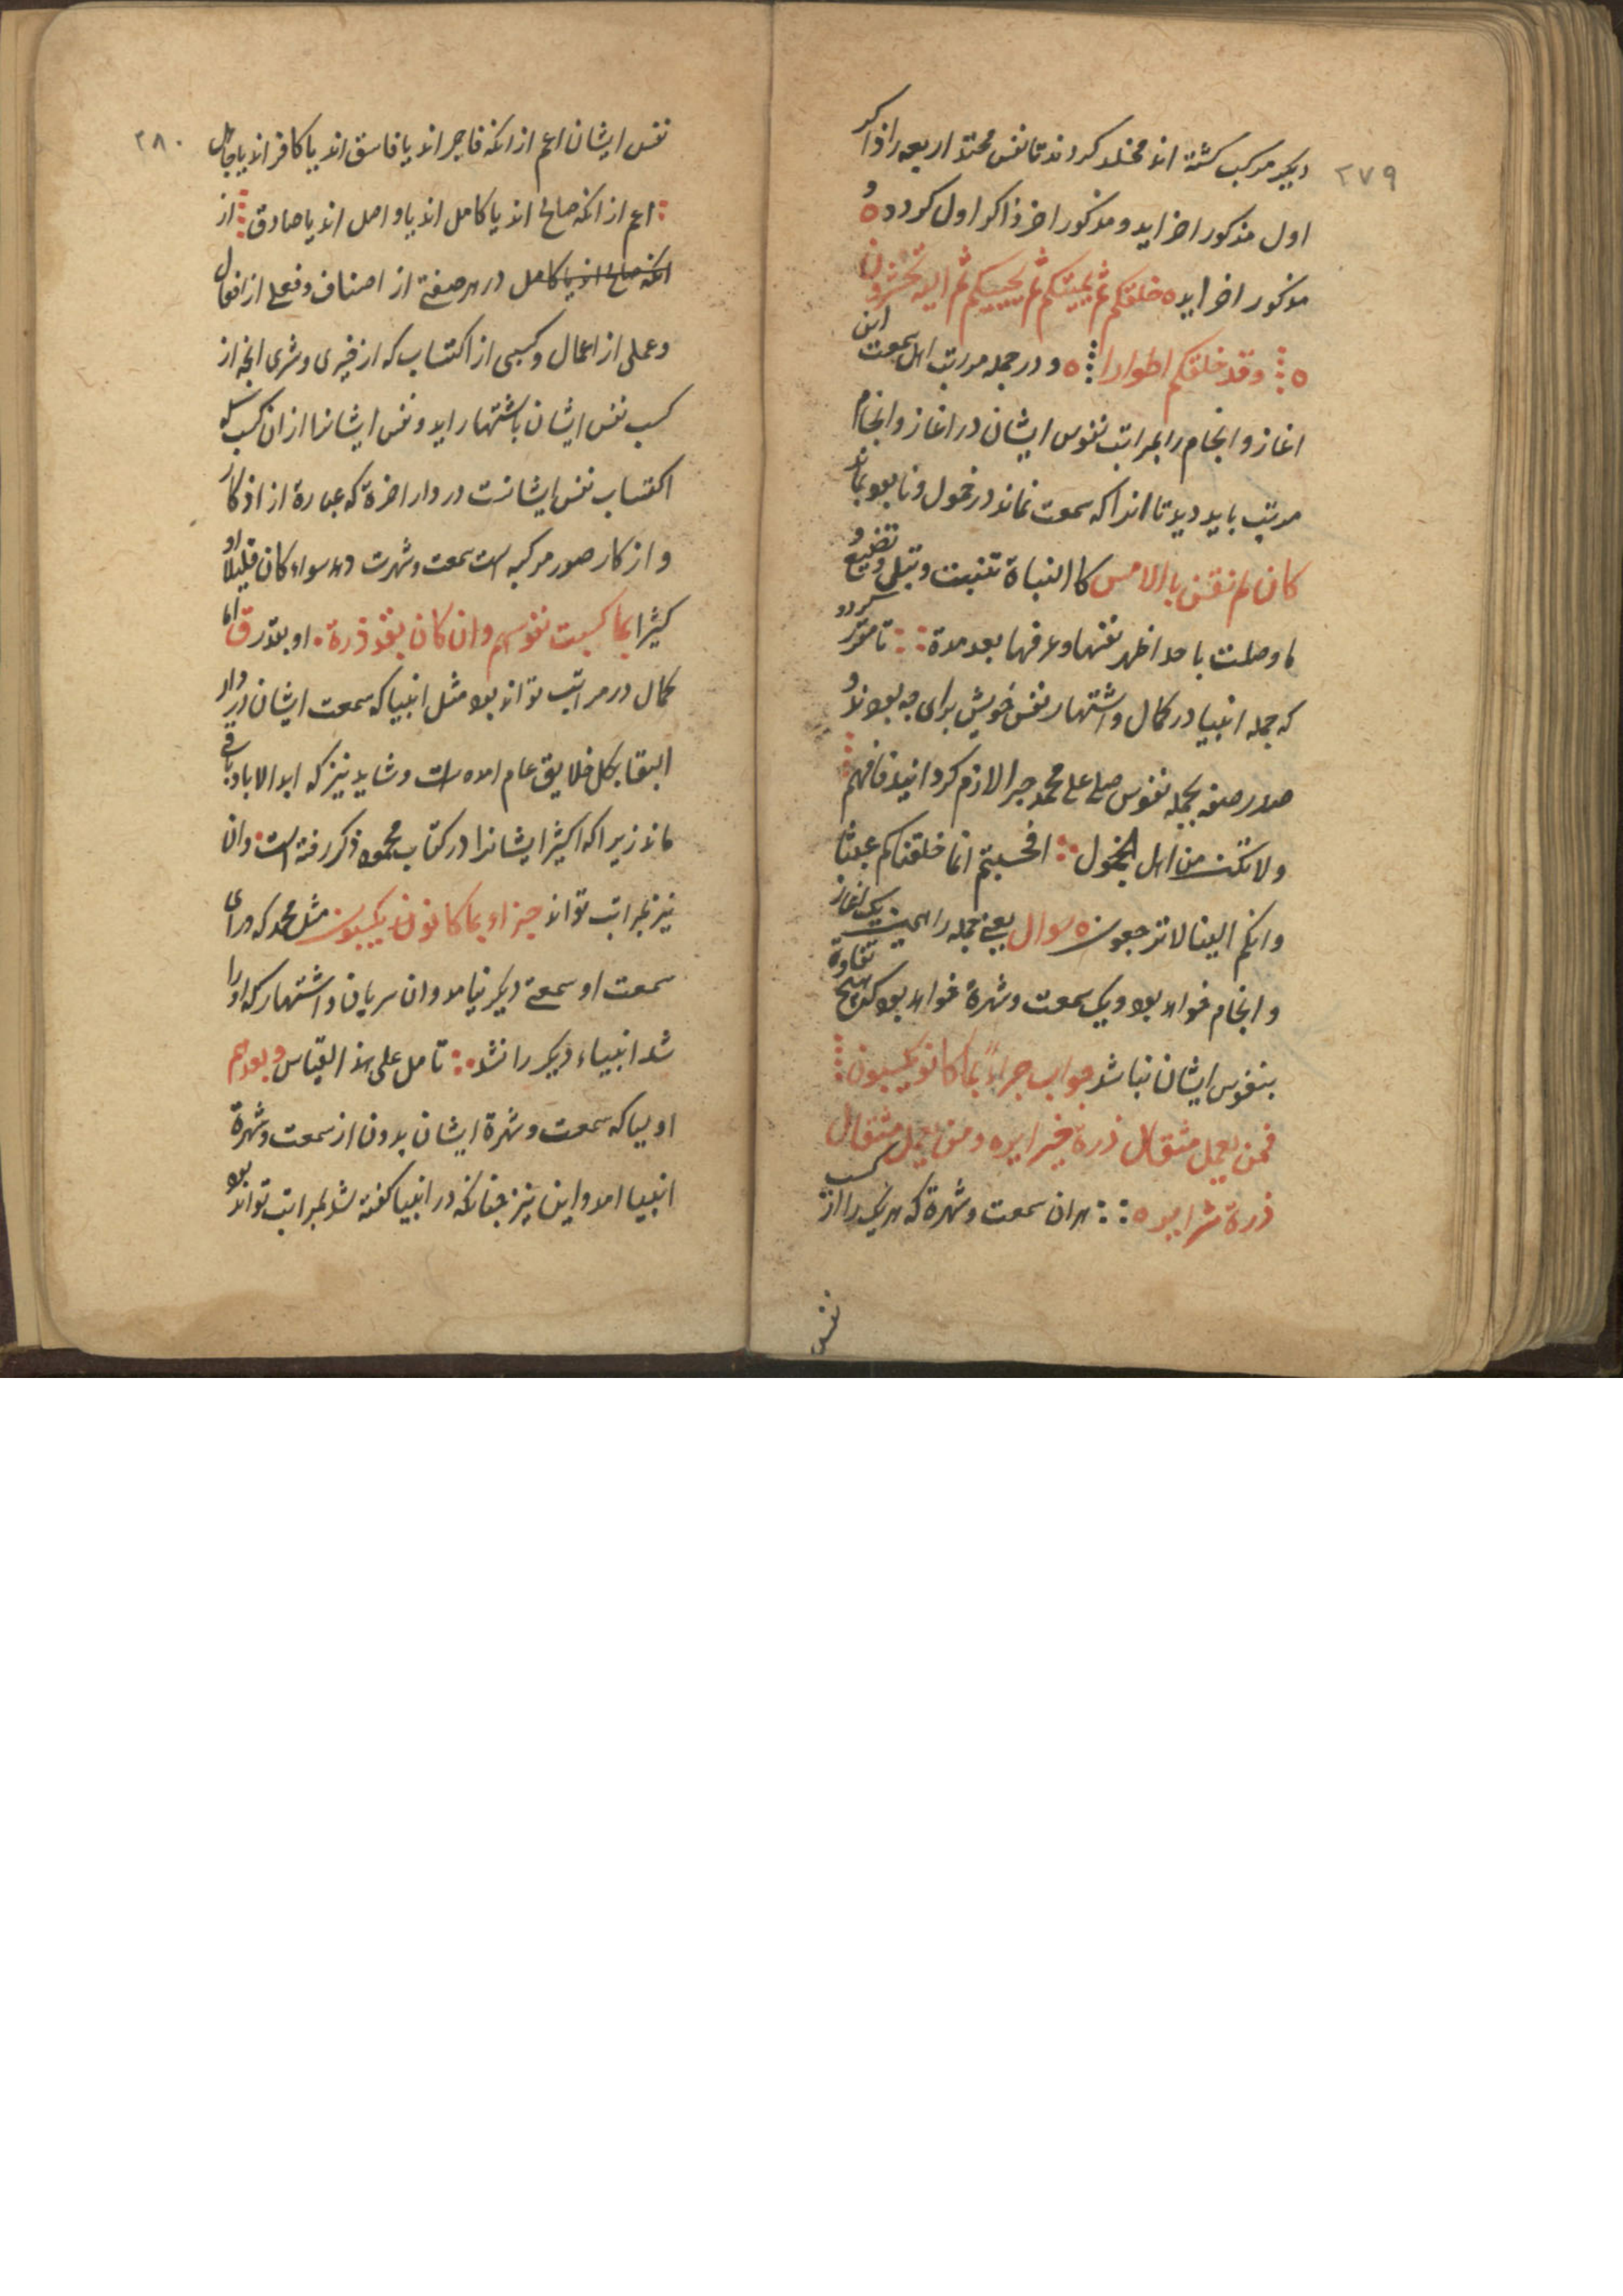 ۲۷۹
دیکر مرکب کشته اند مخلد کردند تا نفس محتد اربعه را ذاکر
اول مذکور اخر اید و مذکور اخر ذاکر اول کردد ه و
مذکور اخر اید ه خلقکم ثم یمیتکم ثم یحییکم ثم الیه تحشرون
ه وقد خلقکم اطوارا ه و در جمله مراتب اهل سمعت این
اغاز و انجام را بمراتب نفوس ایشان در اغاز و انجام
مرتب باید دید تا انرا که سمعت نماند در خمول و نابود بماند
کان لم تغن باالامس کا النباة تنبت و تبلی و تضیع و
ما وصلت با حد اظهر نفنها و عرفها بعد مدة تا مقرر کردد
که جمله انبیا در کمال و اشتهار نفس خویش برای چه بودند و
صدر صفه بجمله نفوس صلی علی محمد چرا لازم کردانید فافهم
ولا تکن من اهل الخمول افحسبتم انما خلقناکم عبثا
وانکم الینا لا ترجعون ه سوال یعنی جمله را همین یک اغاز
و انجام خواهد بود و یک سمعت و شهرة خواهد بود که هیچ تفاوة
بنفوس ایشان نباشد جواب جزاء بما کانو یکسبون
فمن یعمل مثقال ذرة خیرا یره ومن یعمل مثقال
ذرة شرا یره هر ان سمعت و شهرة که هر یک را از کسب
نفس
۲۸۰
نفس ایشان اعم از انکه فاجر اند یا فاسق اند یا کافر اند یا جاهل
اعم از انکه صالح اند یا کامل اند یا واصل اند یا صادق از
انکه صالح اند یا کامل در هر صفتی از اصناف و فعلی از افعال
و عملی از اعمال و کسبی از اکتساب که از خیری و شری انچه از
کسب نفس ایشان باشتهار اید و نفس ایشانرا از ان کسب
اکتساب نفس ایشانست در دار اخرة که عبارة از اذکار
و از کار صور مرکبه است سمعت و شهرت دهد سواء کان قلیلا او
کثیرا بما کسبت نفوسهم وان کان بقدر ذرة او بقدر ق اما
کمال در مراتب تواند بود مثل انبیا که سمعت ایشان در دار
البقا بکل خلایق عام امده است و شاید نیز که ابد الاباد باقی
ماند زیرا که اکثر ایشانرا در کتاب محمود ذکر رفته است وان
نیز بمراتب تواند جزاو بما کانون یکسبون مثل محمد که ورای
سمعت او سمعتی دیکر نیامد وان سریان و اشتهار که او را
شد انبیاء دیکر را نشد تامل علی هذا القیاس و بعدهم
اولیا که سمعت و شهرة ایشان بدون از سمعت و شهرة
انبیا امد و این نیز چنانکه در انبیا کفته شد بمراتب تواند بود